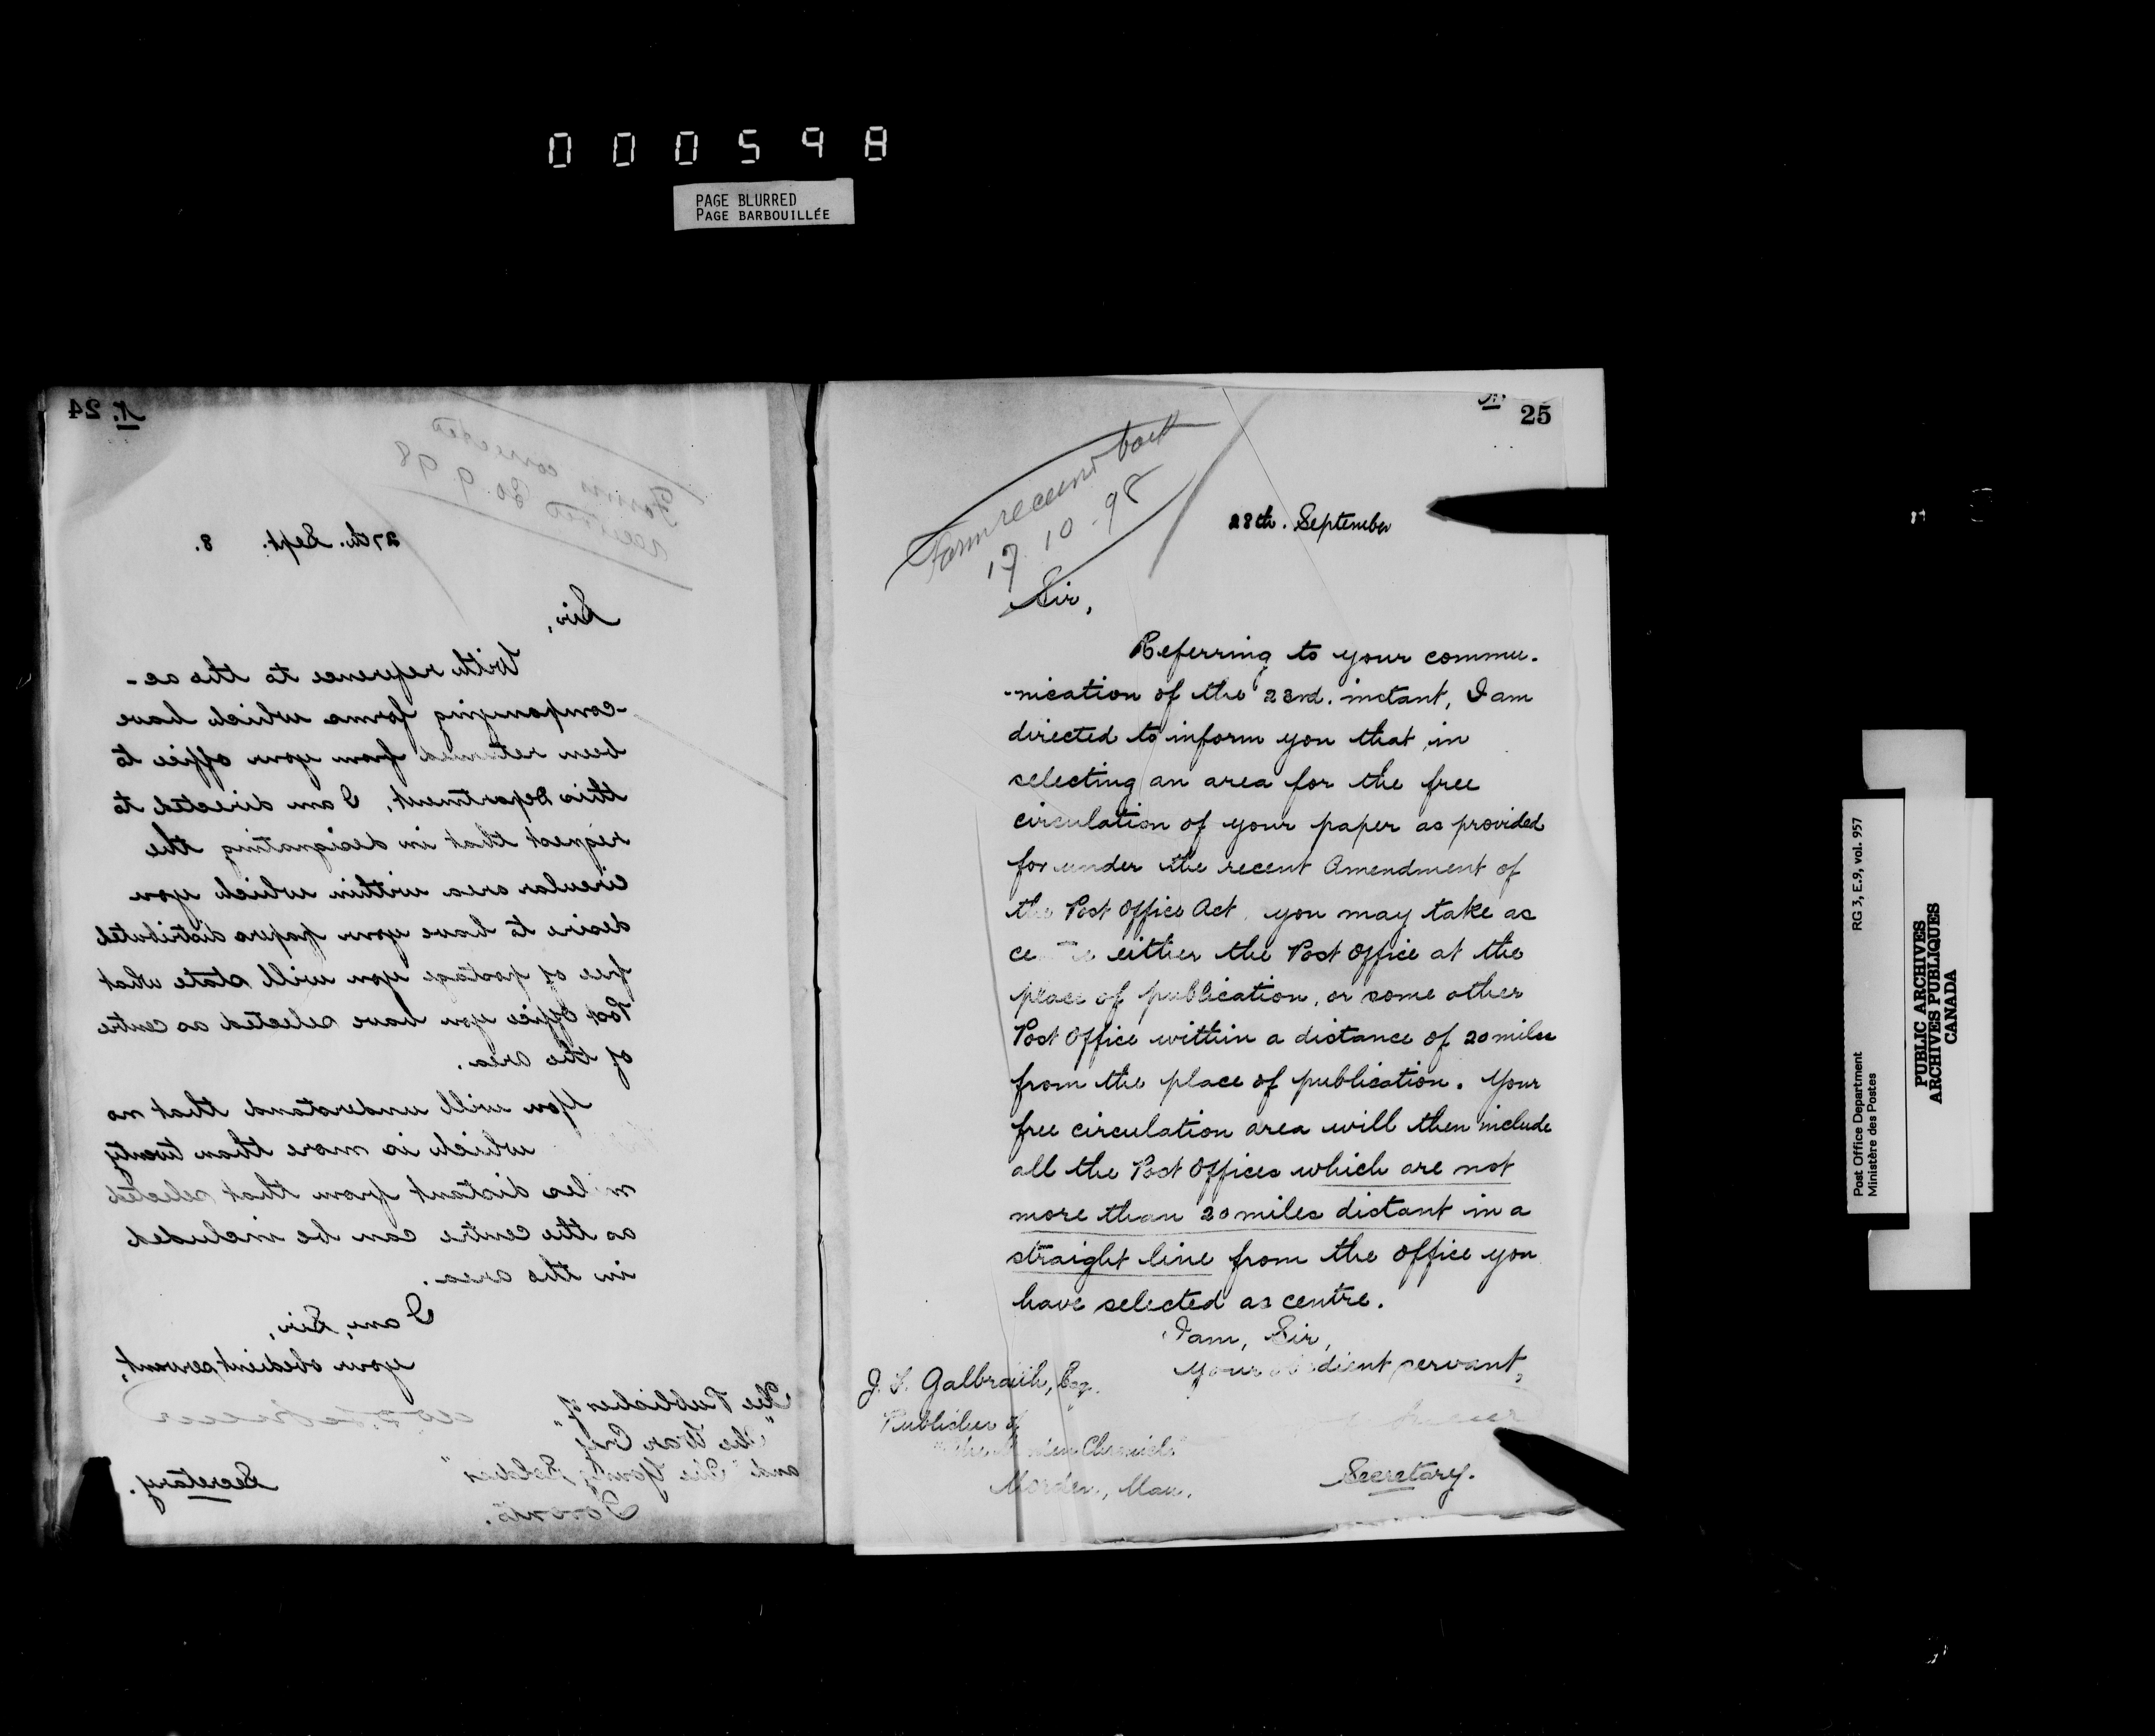 000598
PAGE BLURRED
PAGE BARBOUILLÉE
N. 24
Forms corrected
received 30.9.98
27th. Sept. 8.
Sir,
With reference to the ac-
-companying forms which have
been returned from your office to
this Department, I am directed to
request that in designating the
circular area within which you
desire to have your papers distributed
free of postage you will state what
Post Office you have selected as centre
of the area.
You will understand that no
which is more than twenty
miles distant from that selected
as the centre can be included
in the area.
I am, Sir,
your obedient servant,
The Publisher of
"The War Cry"
and "The Young Soldier"
Toronto.
Secretary.
25
Form received back
17.10-98
28th. September
Sir,
Referring to your commu-
-nication of the 23rd. instant, I am
directed to inform you that in
selecting an area for the free
circulation of your paper as provided
for under the recent Amendment of
the Post Office Act you may take as
centre either the Post Office at the
place of publication, or some other
Post Office within a distance of 20 miles
from the place of publication. Your
free circulation area will then include
all the Post Offices which are not
more than 20 miles distant in a
straight line from the office you
have selected as centre.
I am, Sir,
your obedient servant,
J. S. Galbraith, Esq.
Publisher of
"The Morden Chronicle"
Morden, Man.
Secretary.
Post Office Department
Ministère des Postes
RG 3, E.9, vol. 957
PUBLIC ARCHIVES
ARCHIVES PUBLIQUES
CANADA